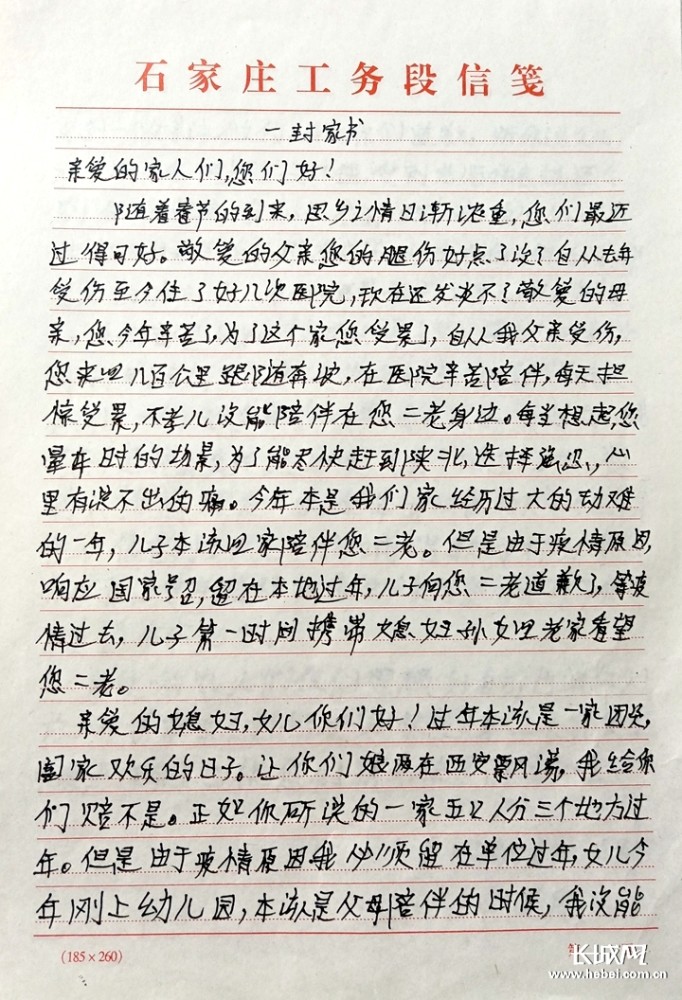 石家庄工务段信笺
一封家书
亲爱的家人们,您们好!
随着春节的到来,思乡之情日渐浓重,您们最近
过得可好。敬爱的父亲您的腿伤好点了没?自从去年
受伤至今住了好几次医院,现在还发炎不?敬爱的母
亲,您今年辛苦了,为了这个家您受累了,自从我父亲受伤,
您来回几百公里跟随奔波,在医院辛苦陪伴,每天担
惊受累,不孝儿没能陪伴在您二老身边。每当想起,您
晕车时的场景,为了能尽快赶到陕北,选择强忍,心
里有说不出的痛。今年本是我们家经历过大的动难
的一年,儿子本该回家陪伴您二老。但是由于疫情原因,
响应国家号召,留在本地过年,儿子向您二老道歉了,等疫
情过去,儿子第一时间携带媳妇孙女回老家看望
您二老。
亲爱的媳妇,女儿你们好!过年本该是一家团聚,
阖家欢乐的日子。让你们娘两在西安飘荡,我给你
们赔不是。正如你所说的一家五口人分三个地方过
年。但是由于疫情原因我必须留在单位过年,女儿今
年刚上幼儿园,本该是父母陪伴的时候,我没能
(185×260)
长城网
www.hebei.com.cn